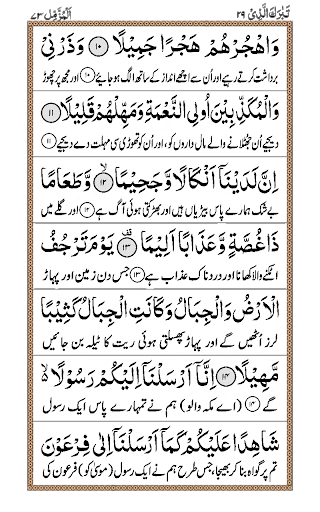 تَبٰرَكَ الَّذِیْ ۲۹
اَلْمُزَّمِّل ۷۳
وَاهْجُرْهُمْ هَجْرًا جَمِیْلًا ۝۱۰ وَذَرْنِیْ
برداشت کرتے رہیے اور اُن سے اچھے انداز کے ساتھ الگ ہو جائیے ۝۱۰ اور مجھ پر چھوڑ
وَالْمُكَذِّبِیْنَ اُولِی النَّعْمَةِ وَمَهِّلْهُمْ قَلِیْلًا ۝۱۱
دیجیے اُن جھٹلانے والے مال داروں کو، اور اُن کو تھوڑی سی مہلت دے دیجیے ۝۱۱
اِنَّ لَدَیْنَاۤ اَنْكَالًا وَّجَحِیْمًا ۝۱۲ۙ وَّطَعَامًا
بے شک ہمارے پاس بیڑیاں ہیں اور بھڑکتی ہوئی آگ ہے ۝۱۲ اور گلے میں
ذَا غُصَّةٍ وَّعَذَابًا اَلِیْمًا ۝۱۳ یَوْمَ تَرْجُفُ
اٹکنے والا کھانا اور دردناک عذاب ہے ۝۱۳ جس دن زمین اور پہاڑ
الْاَرْضُ وَالْجِبَالُ وَكَانَتِ الْجِبَالُ كَثِیْبًا
لرز اُٹھیں گے اور پہاڑ پھسلتی ہوئی ریت کا ٹیلہ بن جائیں
مَّهِیْلًا ۝۱۴ اِنَّاۤ اَرْسَلْنَاۤ اِلَیْكُمْ رَسُوْلًا ۙ
گے ۝۱۴ (اے مکہ والو) ہم نے تمہارے پاس ایک رسول
شَاهِدًا عَلَیْكُمْ كَمَاۤ اَرْسَلْنَاۤ اِلٰی فِرْعَوْنَ
تم پر گواہ بنا کر بھیجا، جس طرح ہم نے ایک رسول (موسیٰ کو) فرعون کی